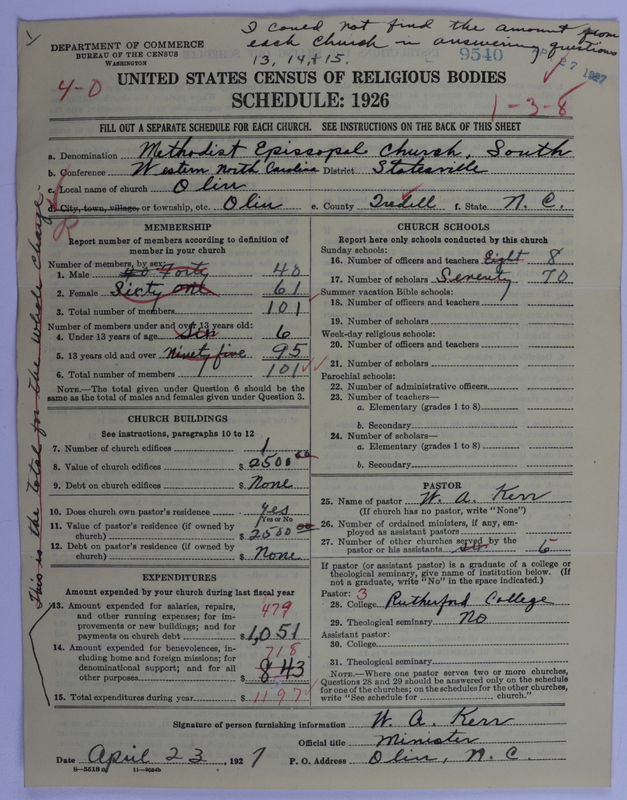 I could not find the amount from
each church in answering questions
13, 14, + 15.
DEPARTMENT OF COMMERCE
BUREAU OF THE CENSUS
WASHINGTON
9540
27 1927
4-0
UNITED STATES CENSUS OF RELIGIOUS BODIES
SCHEDULE: 1926
1-3-8
FILL OUT A SEPARATE SCHEDULE FOR EACH CHURCH. SEE INSTRUCTIONS ON THE BACK OF THIS SHEET
a. Denomination Methodist Episcopal Church, South
b. Conference Western North Carolina District Statesville
c. Local name of church Olin
d. City, town, village, or township, etc. Olin e. County Iredell f. State N. C.
MEMBERSHIP
Report number of members according to definition of
member in your church
Number of members, by sex:
1. Male 40 Forty 40
2. Female Sixty one 61
3. Total number of members 101
Number of members under and over 13 years old:
4. Under 13 years of age Six 6
5. 13 years old and over Ninety five 95
6. Total number of members 101
NOTE.—The total given under Question 6 should be the
same as the total of males and females given under Question 3.
CHURCH BUILDINGS
See instructions, paragraphs 10 to 12
7. Number of church edifices 1
8. Value of church edifices $ 2500 00
9. Debt on church edifices $ None
10. Does church own pastor's residence yes
(Yes or No)
11. Value of pastor's residence (if owned by
church) $ 2500 00
12. Debt on pastor's residence (if owned by
church) $ None
EXPENDITURES
Amount expended by your church during last fiscal year
13. Amount expended for salaries, repairs,
and other running expenses; for im-
provements or new buildings; and for
payments on church debt $ 1,051
479
14. Amount expended for benevolences, in-
cluding home and foreign missions; for
denominational support; and for all
other purposes $ 843
718
15. Total expenditures during year $ 1197
This is the total for the whole charge.
CHURCH SCHOOLS
Report here only schools conducted by this church
Sunday schools:
16. Number of officers and teachers Eight 8
17. Number of scholars Seventy 70
Summer vacation Bible schools:
18. Number of officers and teachers
19. Number of scholars
Week-day religious schools:
20. Number of officers and teachers
21. Number of scholars
Parochial schools:
22. Number of administrative officers
23. Number of teachers—
a. Elementary (grades 1 to 8)
b. Secondary
24. Number of scholars—
a. Elementary (grades 1 to 8)
b. Secondary
PASTOR
25. Name of pastor W. A. Kerr
(If church has no pastor, write "None")
26. Number of ordained ministers, if any, em-
ployed as assistant pastors
27. Number of other churches served by the
pastor or his assistants six 6
If pastor (or assistant pastor) is a graduate of a college or
theological seminary, give name of institution below. (If
not a graduate, write "No" in the space indicated.)
Pastor: 3
28. College Rutherford College
29. Theological seminary No
Assistant pastor:
30. College
31. Theological seminary
NOTE.—Where one pastor serves two or more churches,
Questions 28 and 29 should be answered only on the schedule
for one of the churches; on the schedules for the other churches,
write "See schedule for church."
Signature of person furnishing information W. A. Kerr
Official title Minister
Date April 23, 1927 P. O. Address Olin, N. C.